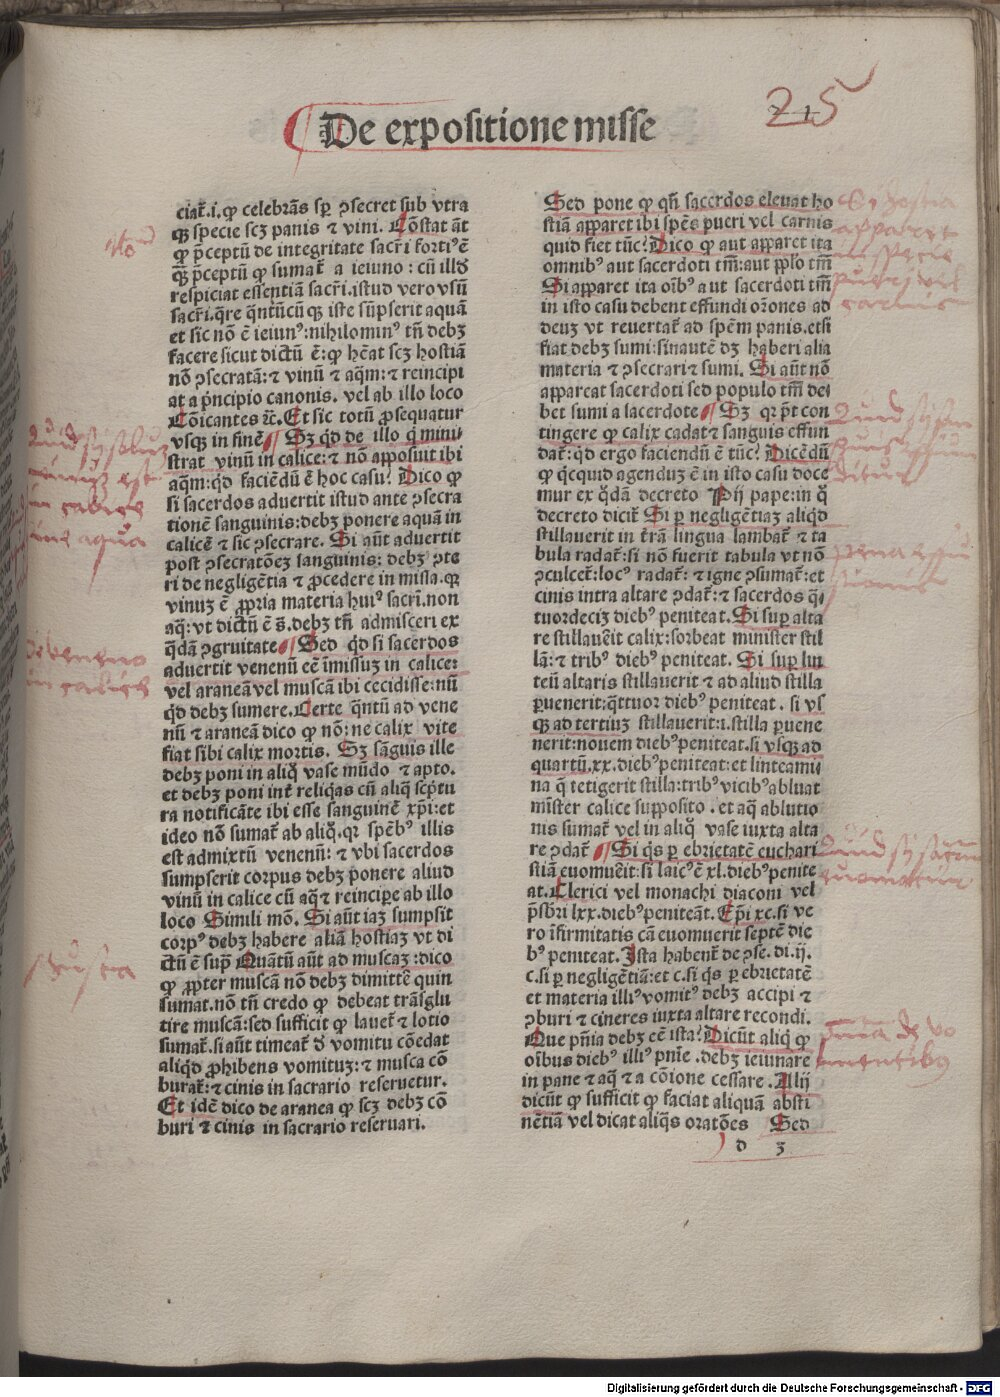 De expositione misse
25
ciat̄.i.ꝙ celebrās sꝑ ꝯsecret sub vtra
qꝫ specie scꝫ panis ⁊ vini. Cōstat āt
ꝙ p̄ceptū de integritate sacr̄i forti⁹ ē
qꝫ̄ p̄ceptū ꝙ sumat̄ a ieiuno : cū illḋ
respiciat essentiā sacr̄i.istud vero vsū
sacr̄i.q̄re q̄ntūcūqꝫ iste sūpserit aquā
et sic nō ē ieiun⁹:nihilomin⁹ tn̄ debꝫ
facere sicut dictū ē:ꝙ hēat scꝫ hostiā
nō ꝯsecratā:⁊ vinū ⁊ aq̄m:⁊ reincipi
at a p̄ncipio canonis. vel ab illo loco
Cōicantes ⁊c̄. Et sic totū ꝓsequatur
vsqꝫ in finē Sꝫ qd̄ de illo q̄ mini-
strat vinū in calice:⁊ nō apposuit ibi
aq̄m:qd̄ faciēdū ē hoc casu? Dico ꝙ
si sacerdos advertit istud ante ꝯsecra
tionē sanguinis:debꝫ ponere aquā in
calicē ⁊ sic ꝯsecrare. Si aūt advertit
post ꝯsecratōeꝫ sanguinis: debꝫ ꝯte
ri de negligētia ⁊ ꝓcedere in missa.qꝫ
vinuꝫ ē ꝓpria materia hui⁹ sacr̄i.non
aq̄:vt dictū ē s̄.debꝫ tn̄ admisceri ex
q̄dā ꝯgruitate Sed qd̄ si sacerdos
advertit venenū eē īmissuꝫ in calice:
vel araneā vel muscā ibi cecidisse:nū
qd̄ debꝫ sumere. Certe q̄ntū ad vene
nū ⁊ araneā dico ꝙ nō: ne calix vite
fiat sibi calix mortis. Sꝫ sāguis ille
debꝫ poni in aliq̄ vase mūdo ⁊ apto.
et debꝫ poni int̄ reliq̄as cū aliq̄ scptu
ra notificāte ibi esse sanguinē xp̄i:et
ideo nō sumat̄ ab aliq̄.qr spēb⁹ illis
est admixtū venenū: ⁊ vbi sacerdos
sumpserit corpus debꝫ ponere aliud
vinū in calice cū aq̄ ⁊ reincipe ab illo
loco Simili mō. Si aūt iaꝫ sumpsit
corp⁹ debꝫ habere aliā hostiaꝫ vt di
ctū ē supͣ Quātū aūt ad muscaꝫ :dico
ꝙ ꝓpter muscā nō debꝫ dimittē quin
sumat.nō tn̄ credo ꝙ debeat trāsglu
tire muscā:sed sufficit ꝙ lauet̄ ⁊ lotio
sumat̄.si aūt timeat̄ ḋ vomitu cōedat
aliqd̄ ꝓhibens vomituꝫ:⁊ musca cō
burat̄:⁊ cinis in sacrario reseruetur.
Et idē dico de aranea ꝙ scꝫ debꝫ cō
buri ⁊ cinis in sacrario reseruari.
Sed pone ꝙ qn̄ sacerdos eleuat ho
stiā apparet ibi spēs pueri vel carnis
quid fiet tūc? Dico ꝙ aut apparet ita
omnib⁹ aut sacerdoti tm̄:aut pplo tm̄
Si apparet ita oīb⁹ aut sacerdoti tm̄
in isto casu debent effundi or̄ones ad
deuꝫ vt reuertat̄ ad spēm panis.etsi
fiat debꝫ sumi:sinautē dꝫ haberi alia
materia ⁊ ꝯsecrari ⁊ sumi. Si aūt nō
appareat sacerdoti sed populo tm̄ de-
bet sumi a sacerdote Sꝫ qr pt̄ con
tingere ꝙ calix cadat ⁊ sanguis effun
dat̄:qd̄ ergo faciendū ē tūc? Dicēdū
ꝙ qcquid agenduꝫ ē in isto casu doce
mur ex q̄dā decreto Pij pape:in q̄
decreto dicit̄ Si ꝑ negligētiaꝫ aliqd̄
stillauerit in t̄rā lingua lambat̄ ⁊ ta
bula radat̄:si nō fuerit tabula vt nō
ꝯculcet̄:loc⁹ radat̄:⁊ igne ꝯsumat̄:et
cinis intra altare ꝯdat̄:⁊ sacerdos q̄-
tuordeciꝫ dieb⁹ peniteat. Si suꝑ alta
re stillauēit calix:sorbeat minister stil
lā:⁊ trib⁹ dieb⁹ peniteat. Si suꝑ lin
teū altaris stillauerit ⁊ ad aliud stilla
ꝑuenerit:q̄ttuor dieb⁹ peniteat. si vs
qꝫ ad tertiuꝫ stillauerit:i.stilla ꝑuene
nerit:nouem dieb⁹ peniteat.si vsqꝫ ad
quartū.xx.dieb⁹ peniteat:et linteami-
na q̄ tetigerit stilla:trib⁹ vicib⁹ abluat
mīster calice supposito . et aq̄ ablutio
nis sumat̄ vel in aliq̄ vase iuxta alta
re ꝯdat̄ Si qs ꝑ ebrietatē euchari
stiā euomuēit:si laic⁹ ē xl.dieb⁹ penite
at. Clerici vel monachi diaconi vel
p̄sbri lxx.dieb⁹ peniteāt. Ep̄i xc.si ve
ro īfirmitatis cā euomuerit septē die
b⁹ peniteat. Ista habent̄ de ꝯse.di.ij.
c.si ꝑ negligētiā:et c.si qs ꝑ ebrietatē
et materia illi⁹ vomit⁹ debꝫ accipi ⁊
ꝯburi ⁊ cineres iuxta altare recondi.
Que pn̄ia debꝫ eē ista? Dicūt aliq̄ ꝙ
oībus dieb⁹ illi⁹ pn̄ie .debꝫ ieiunare
in pane ⁊ aq̄ ⁊ a cōione cessare . Alij
dicūt ꝙ sufficit ꝙ faciat aliquā absti
nētiā vel dicat aliq̄s oratōes Sed
d 3
de veneno
in calice
Si hostia
apparet
in specie
pueri vel
carnis
Digitalisierung gefördert durch die Deutsche Forschungsgemeinschaft - DFG